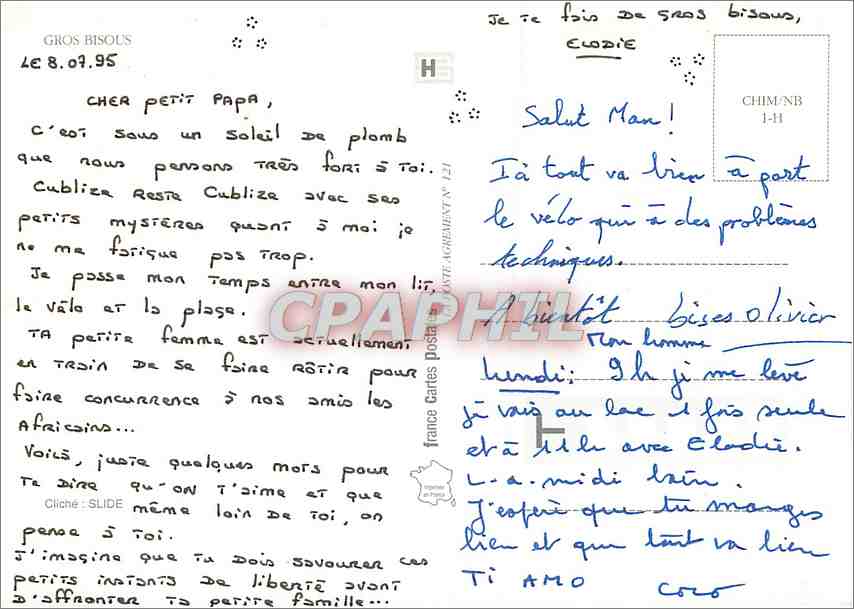 GROS BISOUS
LE 8.07.95
CHER PETIT PAPA,
C'EST SOUS UN SOLEIL DE PLOMB
QUE NOUS PENSONS TRÈS FORT À TOI.
CUBLIZE RESTE CUBLIZE AVEC SES
PETITS MYSTÈRES QUANT À MOI JE
NE ME FATIGUE PAS TROP.
JE PASSE MON TEMPS ENTRE MON LIT,
LE VÉLO ET LA PLAGE.
TA PETITE FEMME EST ACTUELLEMENT
EN TRAIN DE SE FAIRE RÔTIR POUR
FAIRE CONCURRENCE À NOS AMIS LES
AFRICAINS...
VOILÀ, JUSTE QUELQUES MOTS POUR
TE DIRE QU'ON T'AIME ET QUE
Cliché : SLIDE
MÊME LOIN DE TOI, ON
PENSE À TOI.
J'IMAGINE QUE TU DOIS SAVOURER CES
PETITS INSTANTS DE LIBERTÉ AVANT
D'AFFRONTER TA PETITE FAMILLE...
JE TE FAIS DE GROS BISOUS,
ELODIE
H
CHIM/NB
1-H
POSTE AGREMENT N° 121
france Cartes Posta
Imprimée
en France
CPAPHIL
Salut Man!
Ià tout va bien à part
le vélo qui à des problèmes
techniques.
A bientôt bises Olivier
Mon homme
Lundi: 9h je me lève
je vais au lac 1 fois seule
et à 11h avec Elodie.
L-a-midi bain.
J'espère que tu manges
bien et que tout va bien
TI AMO
COCO